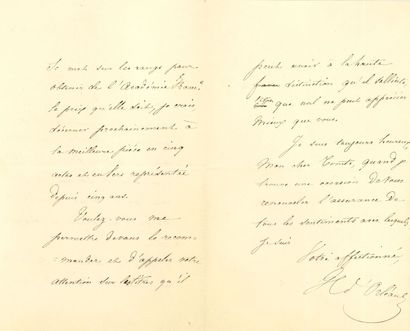 Se met sur les rangs pour
obtenir de l'Académie Franç.
le prix qu'elle doit, je crois
décerner prochainement à
la meilleure pièce en cinq
actes et en vers représentée
depuis cinq ans.
Voulez-vous me
permettre de vous le recom-
-mander et d'appeler votre
attention sur les titres qu'il
peut avoir à la haute
distinction qu'il sollicite
que nul ne peut apprécier
mieux que vous.
Je suis toujours heureux,
Mon cher Comte, quand je
trouve une occasion de vous
renouveler l'assurance de
tous les sentiments avec lesquels
je suis
Votre affectionné,
H d'Orléans